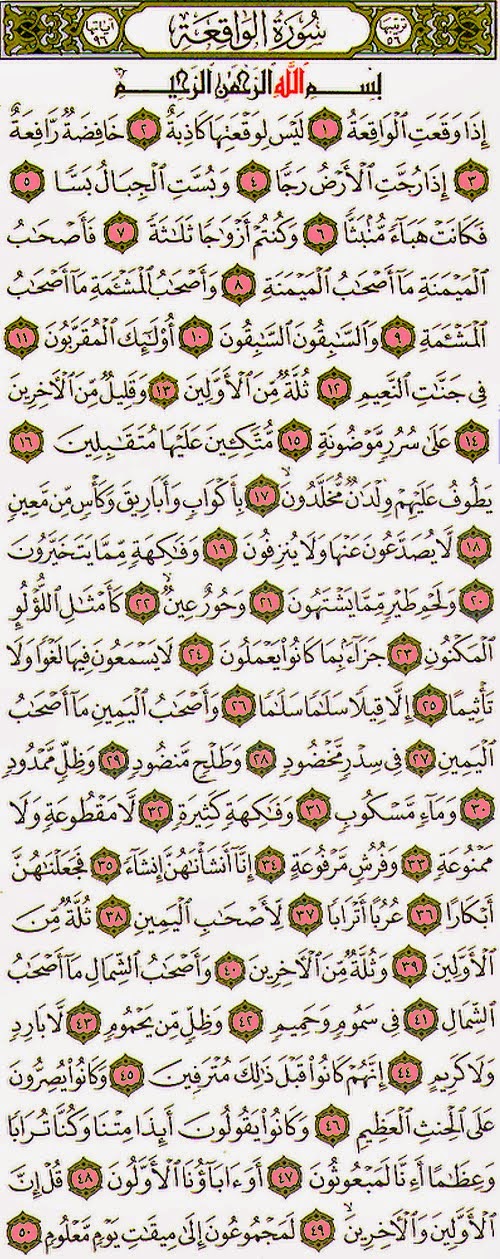 ترتيبها ٥٦ سُورَةُ الوَاقِعَة آياتها ٩٦
بِسْمِ اللَّهِ الرَّحْمَٰنِ الرَّحِيمِ
إِذَا وَقَعَتِ ٱلْوَاقِعَةُ ١ لَيْسَ لِوَقْعَتِهَا كَاذِبَةٌ ٢ خَافِضَةٌ رَّافِعَةٌ
٣ إِذَا رُجَّتِ ٱلْأَرْضُ رَجًّا ٤ وَبُسَّتِ ٱلْجِبَالُ بَسًّا ٥
فَكَانَتْ هَبَآءً مُّنۢبَثًّا ٦ وَكُنتُمْ أَزْوَٰجًا ثَلَٰثَةً ٧ فَأَصْحَٰبُ
ٱلْمَيْمَنَةِ مَآ أَصْحَٰبُ ٱلْمَيْمَنَةِ ٨ وَأَصْحَٰبُ ٱلْمَشْـَٔمَةِ مَآ أَصْحَٰبُ
ٱلْمَشْـَٔمَةِ ٩ وَٱلسَّٰبِقُونَ ٱلسَّٰبِقُونَ ١٠ أُو۟لَٰٓئِكَ ٱلْمُقَرَّبُونَ ١١
فِى جَنَّٰتِ ٱلنَّعِيمِ ١٢ ثُلَّةٌ مِّنَ ٱلْأَوَّلِينَ ١٣ وَقَلِيلٌ مِّنَ ٱلْءَاخِرِينَ
١٤ عَلَىٰ سُرُرٍ مَّوْضُونَةٍ ١٥ مُّتَّكِـِٔينَ عَلَيْهَا مُتَقَٰبِلِينَ ١٦
يَطُوفُ عَلَيْهِمْ وِلْدَٰنٌ مُّخَلَّدُونَ ١٧ بِأَكْوَابٍ وَأَبَارِيقَ وَكَأْسٍ مِّن مَّعِينٍ
١٨ لَّا يُصَدَّعُونَ عَنْهَا وَلَا يُنزِفُونَ ١٩ وَفَٰكِهَةٍ مِّمَّا يَتَخَيَّرُونَ
٢٠ وَلَحْمِ طَيْرٍ مِّمَّا يَشْتَهُونَ ٢١ وَحُورٌ عِينٌ ٢٢ كَأَمْثَٰلِ ٱللُّؤْلُؤِ
ٱلْمَكْنُونِ ٢٣ جَزَآءًۢ بِمَا كَانُوا۟ يَعْمَلُونَ ٢٤ لَا يَسْمَعُونَ فِيهَا لَغْوًا وَلَا
تَأْثِيمًا ٢٥ إِلَّا قِيلًا سَلَٰمًا سَلَٰمًا ٢٦ وَأَصْحَٰبُ ٱلْيَمِينِ مَآ أَصْحَٰبُ
ٱلْيَمِينِ ٢٧ فِى سِدْرٍ مَّخْضُودٍ ٢٨ وَطَلْحٍ مَّنضُودٍ ٢٩ وَظِلٍّ مَّمْدُودٍ
٣٠ وَمَآءٍ مَّسْكُوبٍ ٣١ وَفَٰكِهَةٍ كَثِيرَةٍ ٣٢ لَّا مَقْطُوعَةٍ وَلَا
مَمْنُوعَةٍ ٣٣ وَفُرُشٍ مَّرْفُوعَةٍ ٣٤ إِنَّآ أَنشَأْنَٰهُنَّ إِنشَآءً ٣٥ فَجَعَلْنَٰهُنَّ
أَبْكَارًا ٣٦ عُرُبًا أَتْرَابًا ٣٧ لِّأَصْحَٰبِ ٱلْيَمِينِ ٣٨ ثُلَّةٌ مِّنَ
ٱلْأَوَّلِينَ ٣٩ وَثُلَّةٌ مِّنَ ٱلْءَاخِرِينَ ٤٠ وَأَصْحَٰبُ ٱلشِّمَالِ مَآ أَصْحَٰبُ
ٱلشِّمَالِ ٤١ فِى سَمُومٍ وَحَمِيمٍ ٤٢ وَظِلٍّ مِّن يَحْمُومٍ ٤٣ لَّا بَارِدٍ
وَلَا كَرِيمٍ ٤٤ إِنَّهُمْ كَانُوا۟ قَبْلَ ذَٰلِكَ مُتْرَفِينَ ٤٥ وَكَانُوا۟ يُصِرُّونَ
عَلَى ٱلْحِنثِ ٱلْعَظِيمِ ٤٦ وَكَانُوا۟ يَقُولُونَ أَئِذَا مِتْنَا وَكُنَّا تُرَابًا
وَعِظَٰمًا أَءِنَّا لَمَبْعُوثُونَ ٤٧ أَوَءَابَآؤُنَا ٱلْأَوَّلُونَ ٤٨ قُلْ إِنَّ
ٱلْأَوَّلِينَ وَٱلْءَاخِرِينَ ٤٩ لَمَجْمُوعُونَ إِلَىٰ مِيقَٰتِ يَوْمٍ مَّعْلُومٍ ٥٠